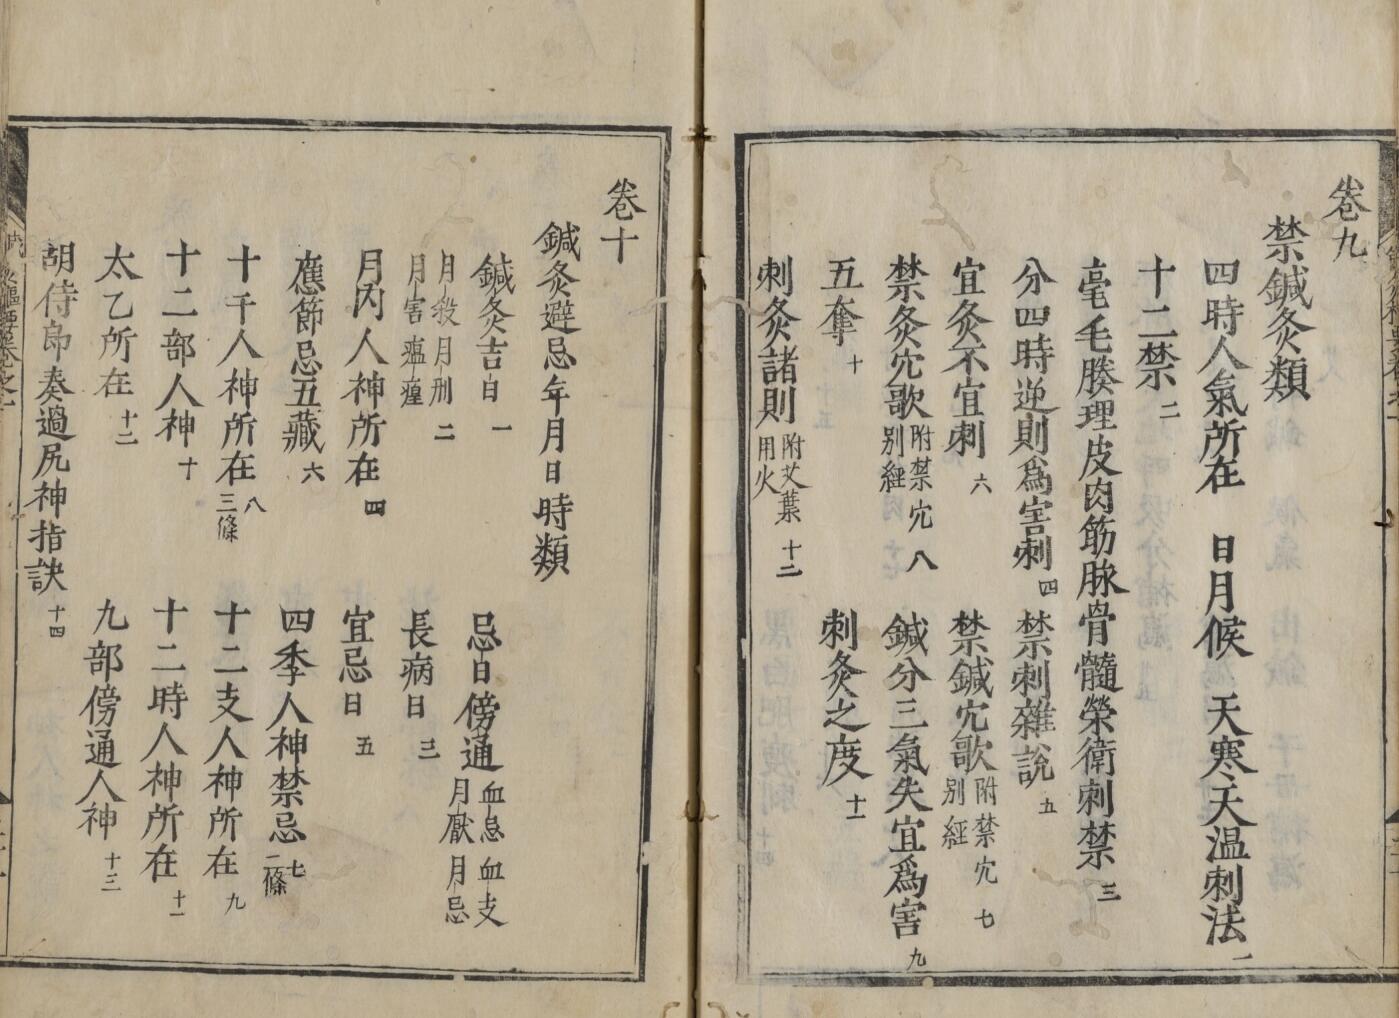 卷九
禁鍼灸類
四時人氣所在 日月候 天寒天温刺法 一
十二禁 二
毫毛腠理皮肉筋脉骨髓榮衛刺禁 三
分四時逆則爲害刺 四 禁刺雜說 五
宜灸不宜刺 六 禁鍼穴歌 附禁穴別經 七
禁灸穴歌 附禁穴別經 八 鍼分三氣失宜爲害 九
五奪 十 刺灸之度 十一
刺灸諸則 附艾葉用火 十二
卷十
鍼灸避忌年月日時類
鍼灸吉日 一 忌日傍通 血忌 血支 月厭 月忌
月殺 月刑 月害 瘟𤶊 二 長病日 三
月内人神所在 四 宜忌日 五
應節忌五藏 六 四季人神禁忌 七 二條
十干人神所在 八 三條 十二支人神所在 九
十二部人神 十 十二時人神所在 十一
太乙所在 十二 九部傍通人神 十三
胡侍郎奏過尻神指訣 十四